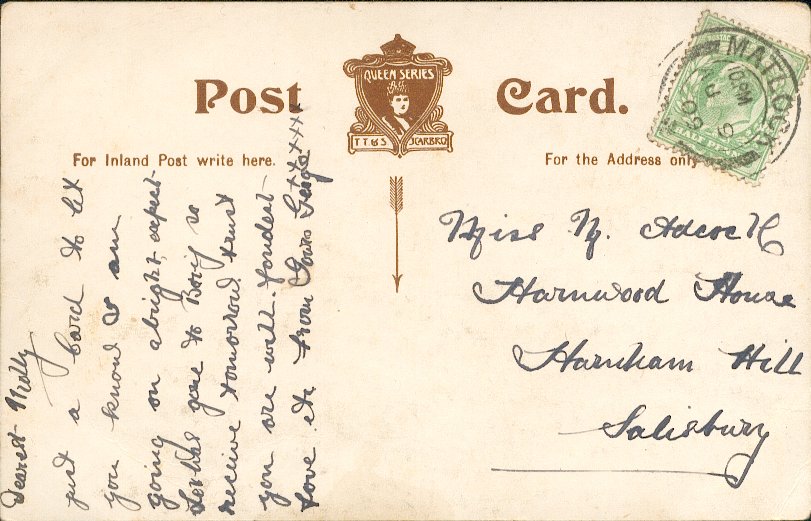 Post Card.
QUEEN SERIES
T T & S SCARBRO
For Inland Post write here.
For the Address only
MATLOCK
10 PM
Dearest Molly
just a Card to let
you know I am
going on alright, expect
has gone to
receive tomorrow trust
you are well. fondest
love etc from Yours George
xxxxx
Miss M. Adcock
Harnwood House
Harnham Hill
Salisbury